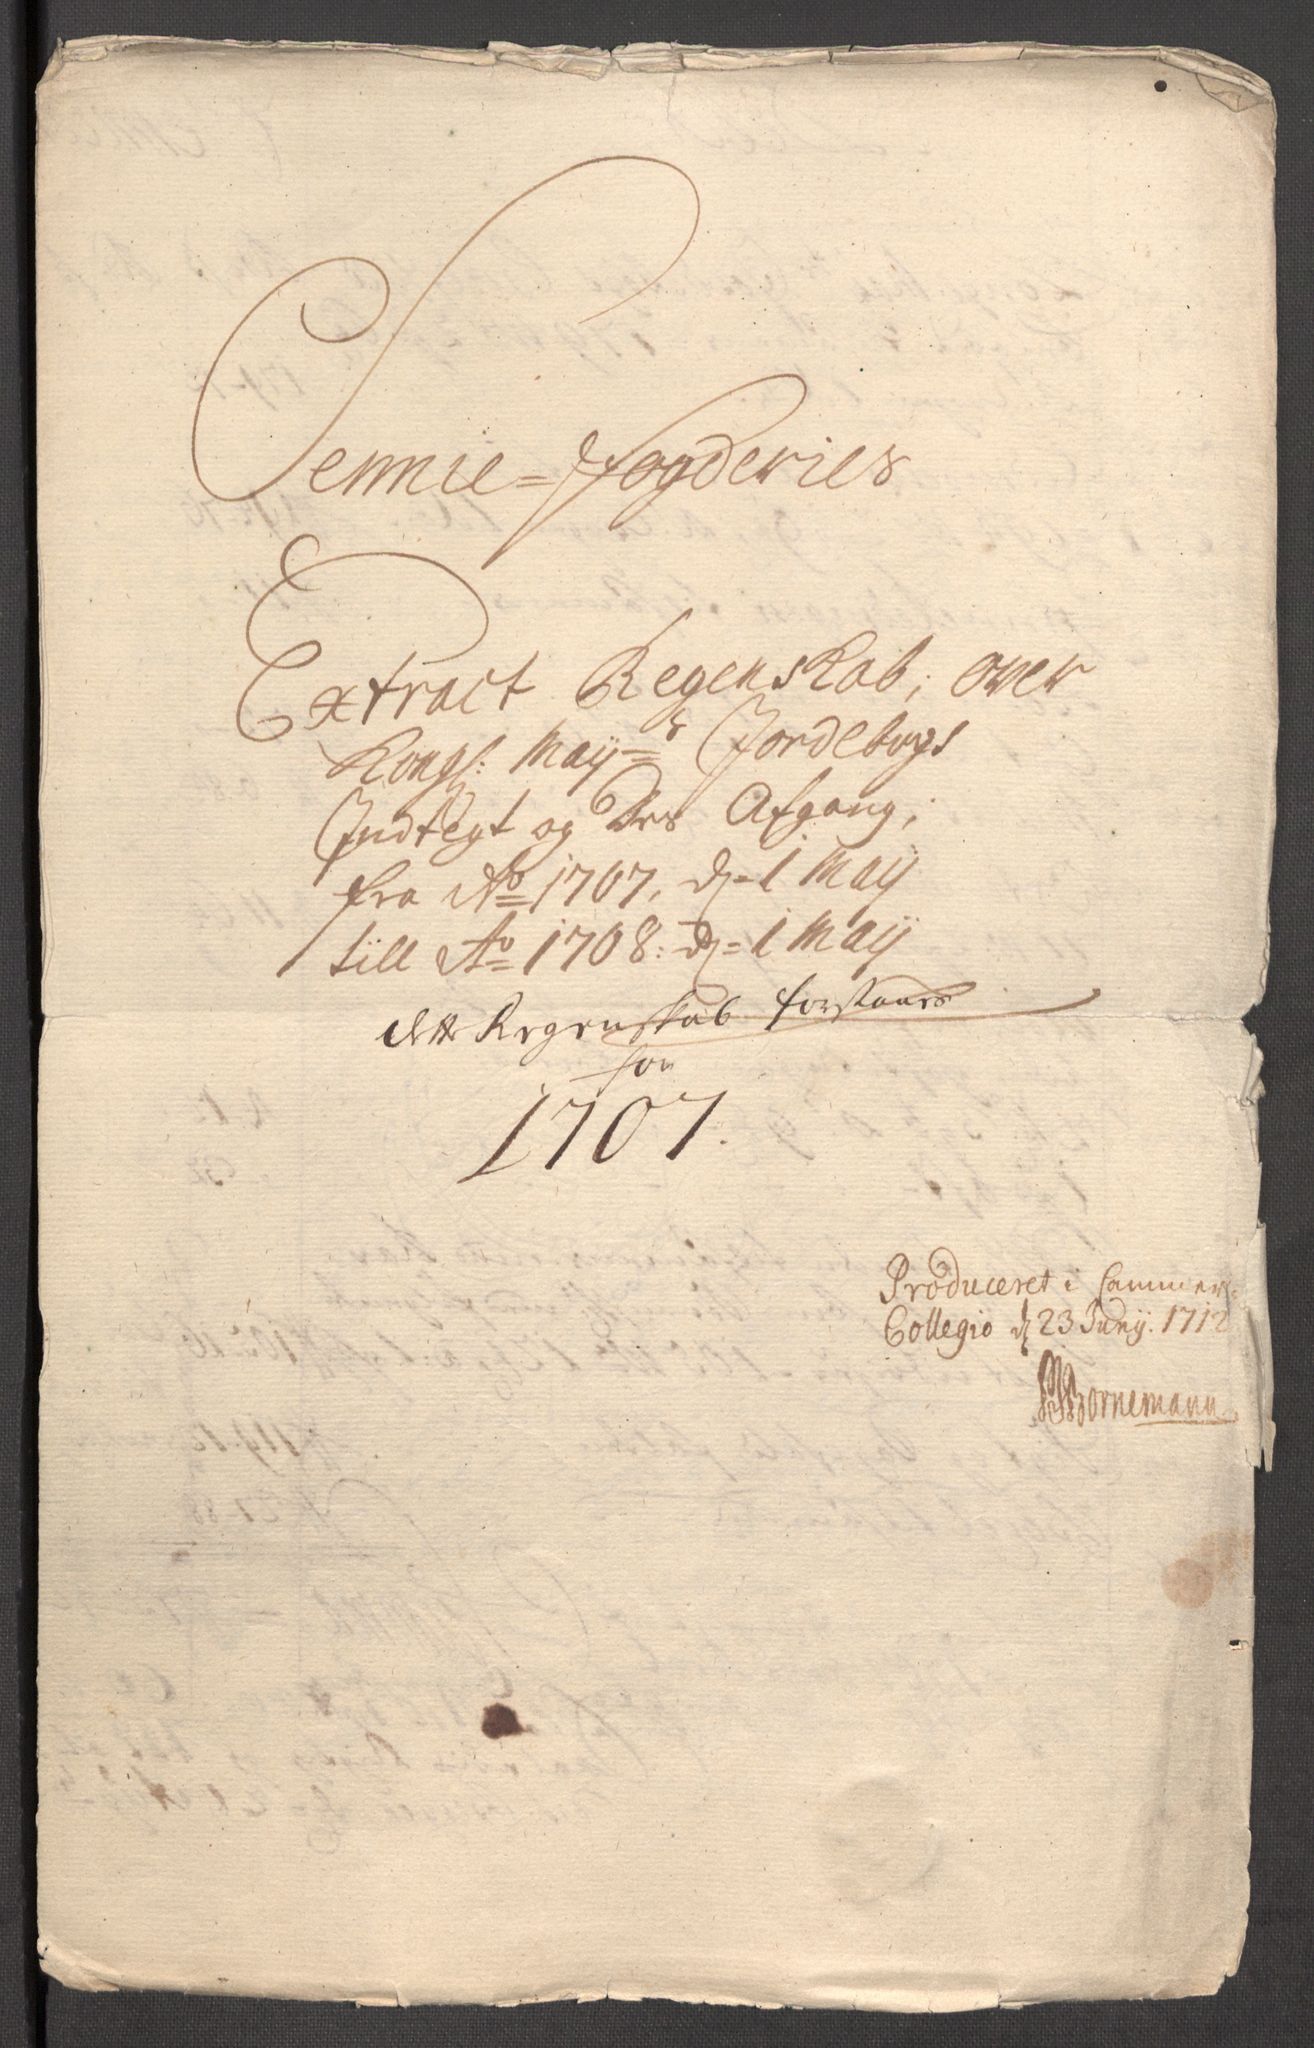 Sennie=Fogderies
Extract Regenskab, over
Kongl: Maÿ=s Jordebogs
Indtegt og Des Afgang,
fra Ao 1707, d= 1 Maÿ
till Ao 1708: d= 1 Maÿ
dette Regenskab forstaaes
for
1707.
Produceret i Cammer-
Collegio d 23 Junÿ. 1712
Bornemann